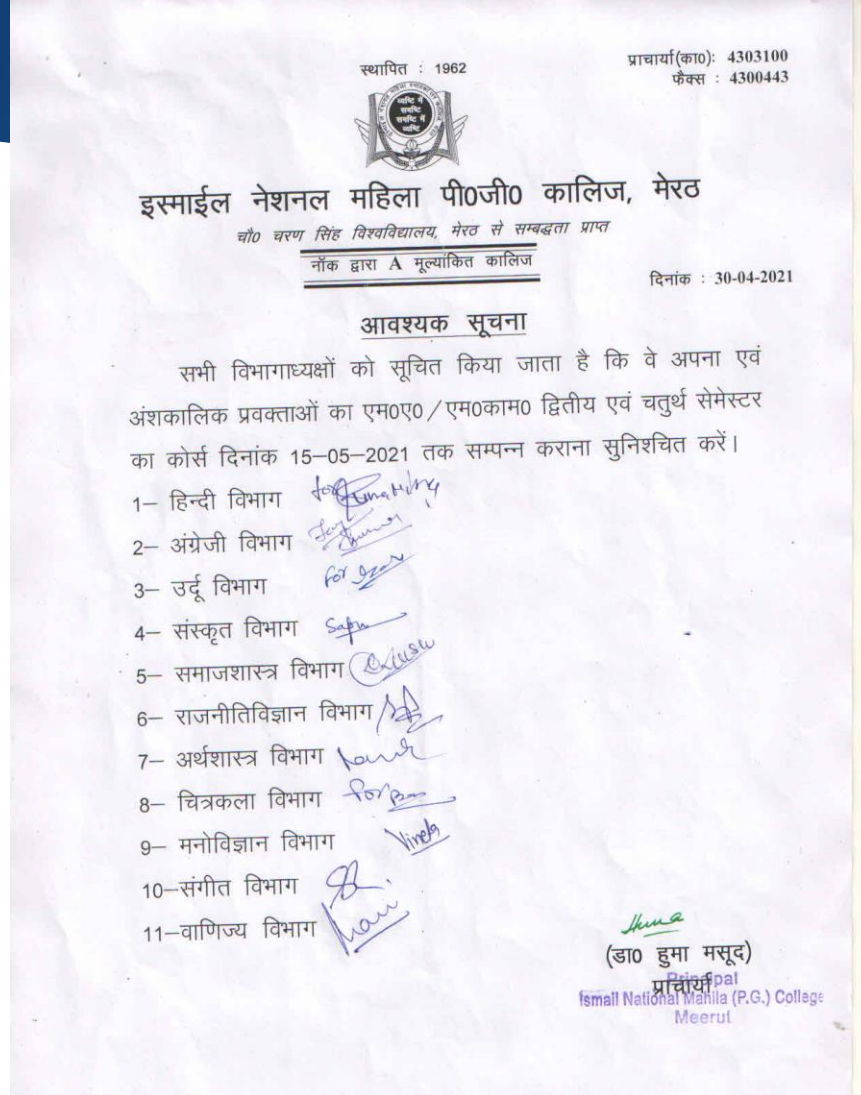 प्राचार्या(का0): 4303100
फैक्स : 4300443
स्थापित : 1962
व्यष्टि में
समष्टि
समष्टि में
व्यष्टि
इस्माईल नेशनल महिला पी0जी0 कालिज, मेरठ
चौ0 चरण सिंह विश्वविद्यालय, मेरठ से सम्बद्धता प्राप्त
नॉक द्वारा A मूल्यांकित कालिज
दिनांक : 30-04-2021
आवश्यक सूचना
सभी विभागाध्यक्षों को सूचित किया जाता है कि वे अपना एवं
अंशकालिक प्रवक्ताओं का एम0ए0/एम0काम0 द्वितीय एवं चतुर्थ सेमेस्टर
का कोर्स दिनांक 15-05-2021 तक सम्पन्न कराना सुनिश्चित करें।
1- हिन्दी विभाग for
2- अंग्रेजी विभाग
3- उर्दू विभाग for
4- संस्कृत विभाग
5- समाजशास्त्र विभाग
6- राजनीतिविज्ञान विभाग
7- अर्थशास्त्र विभाग
8- चित्रकला विभाग for
9- मनोविज्ञान विभाग
10-संगीत विभाग
11-वाणिज्य विभाग
Huma
(डा0 हुमा मसूद)
प्राचार्या
Principal
Ismail National Mahila (P.G.) College
Meerut